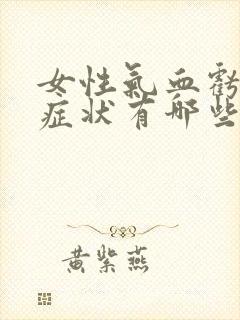 女性氣血虧
症状有哪些
黄紫燕